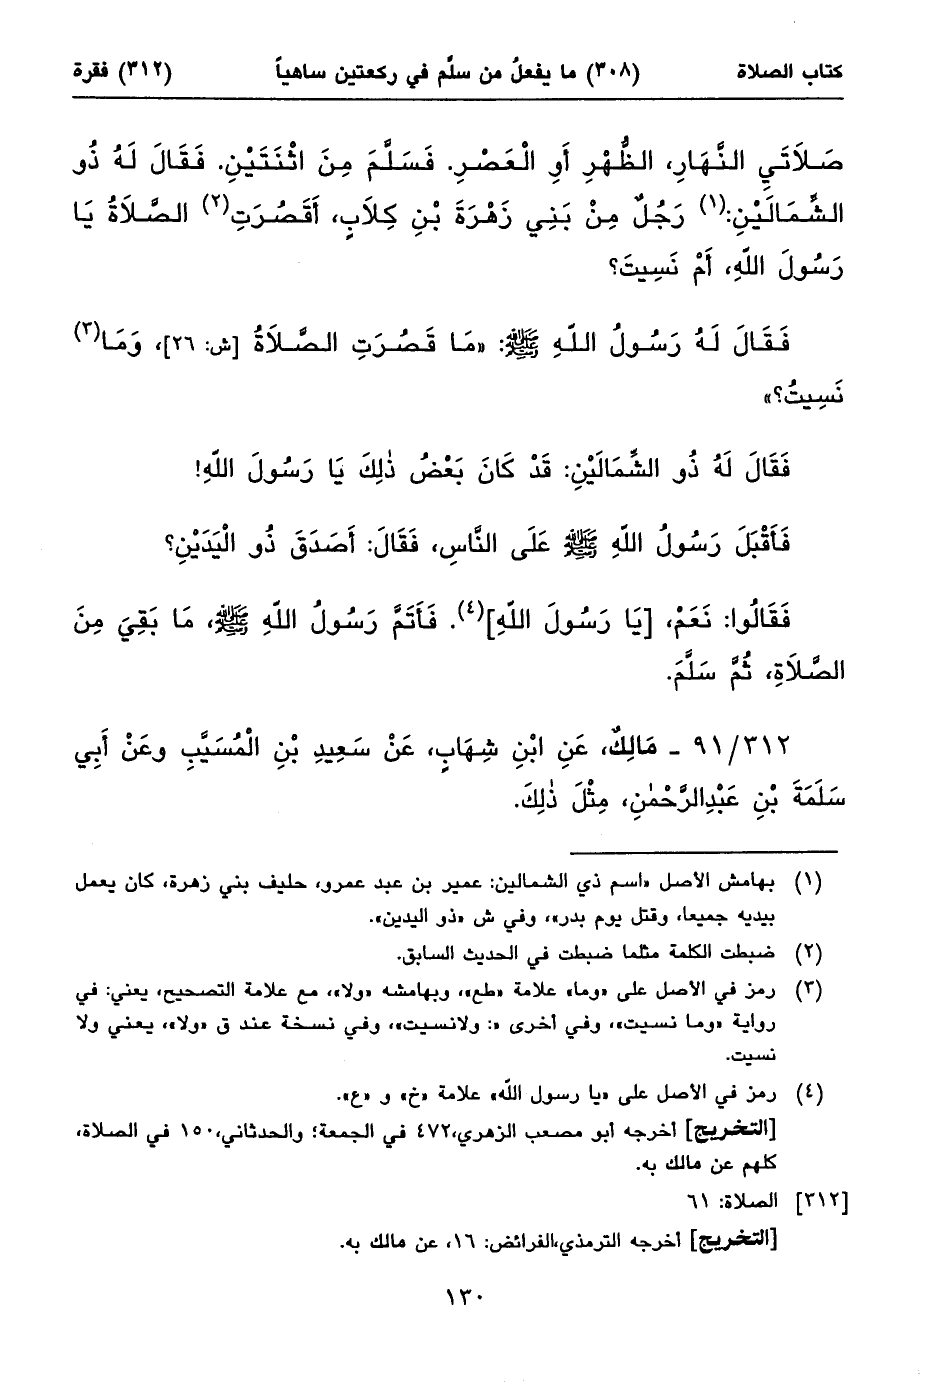 كتاب الصلاة (٣٠٨) ما يفعلُ من سلَّم في ركعتين ساهياً (٣١٢) فقرة
صَلاَتَيِ النَّهَارِ، الظُّهْرِ أَوِ الْعَصْرِ. فَسَلَّمَ مِنَ اثْنَتَيْنِ. فَقَالَ لَهُ ذُو
الشِّمَالَيْنِ:(١) رَجُلٌ مِنْ بَنِي زَهْرَةَ بْنِ كِلاَبٍ، أَقَصُرَتِ(٢) الصَّلاَةُ يَا
رَسُولَ اللَّهِ، أَمْ نَسِيتَ؟
فَقَالَ لَهُ رَسُولُ اللَّهِ ﷺ: «مَا قَصُرَتِ الصَّلاَةُ [ش: ٢٦]، وَمَا(٣)
نَسِيتُ؟»
فَقَالَ لَهُ ذُو الشِّمَالَيْنِ: قَدْ كَانَ بَعْضُ ذٰلِكَ يَا رَسُولَ اللَّهِ!
فَأَقْبَلَ رَسُولُ اللَّهِ ﷺ عَلَى النَّاسِ، فَقَالَ: أَصَدَقَ ذُو الْيَدَيْنِ؟
فَقَالُوا: نَعَمْ، [يَا رَسُولَ اللَّهِ](٤). فَأَتَمَّ رَسُولُ اللَّهِ ﷺ، مَا بَقِيَ مِنَ
الصَّلاَةِ، ثُمَّ سَلَّمَ.
٩١/٣١٢ - مَالِكٌ، عَنِ ابْنِ شِهَابٍ، عَنْ سَعِيدِ بْنِ الْمُسَيَّبِ وعَنْ أَبِي
سَلَمَةَ بْنِ عَبْدِالرَّحْمٰنِ، مِثْلَ ذٰلِكَ.
(١) بهامش الأصل «اسم ذي الشمالين: عمير بن عبد عمرو، حليف بني زهرة، كان يعمل
بيديه جميعا، وقتل يوم بدر»، وفي ش «ذو اليدين».
(٢) ضبطت الكلمة مثلما ضبطت في الحديث السابق.
(٣) رمز في الأصل على «وما» علامة «طع»، وبهامشه «ولا»، مع علامة التصحيح، يعني: في
رواية «وما نسيت»، وفي أخرى «: ولانسيت»، وفي نسخة عند ق «ولا»، يعني ولا
نسيت.
(٤) رمز في الأصل على «يا رسول اللّه» علامة «خ» و «ع».
[التخريج] أخرجه أبو مصعب الزهري،٤٧٢ في الجمعة؛ والحدثاني،١٥٠ في الصلاة،
كلهم عن مالك به.
[٣١٢] الصلاة: ٦١
[التخريج] أخرجه الترمذي،الفرائض: ١٦، عن مالك به.
١٣٠